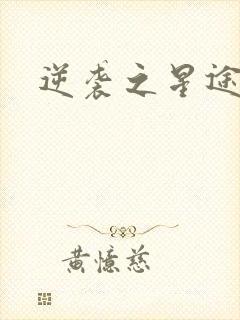 逆袭之星途
黄憶慈